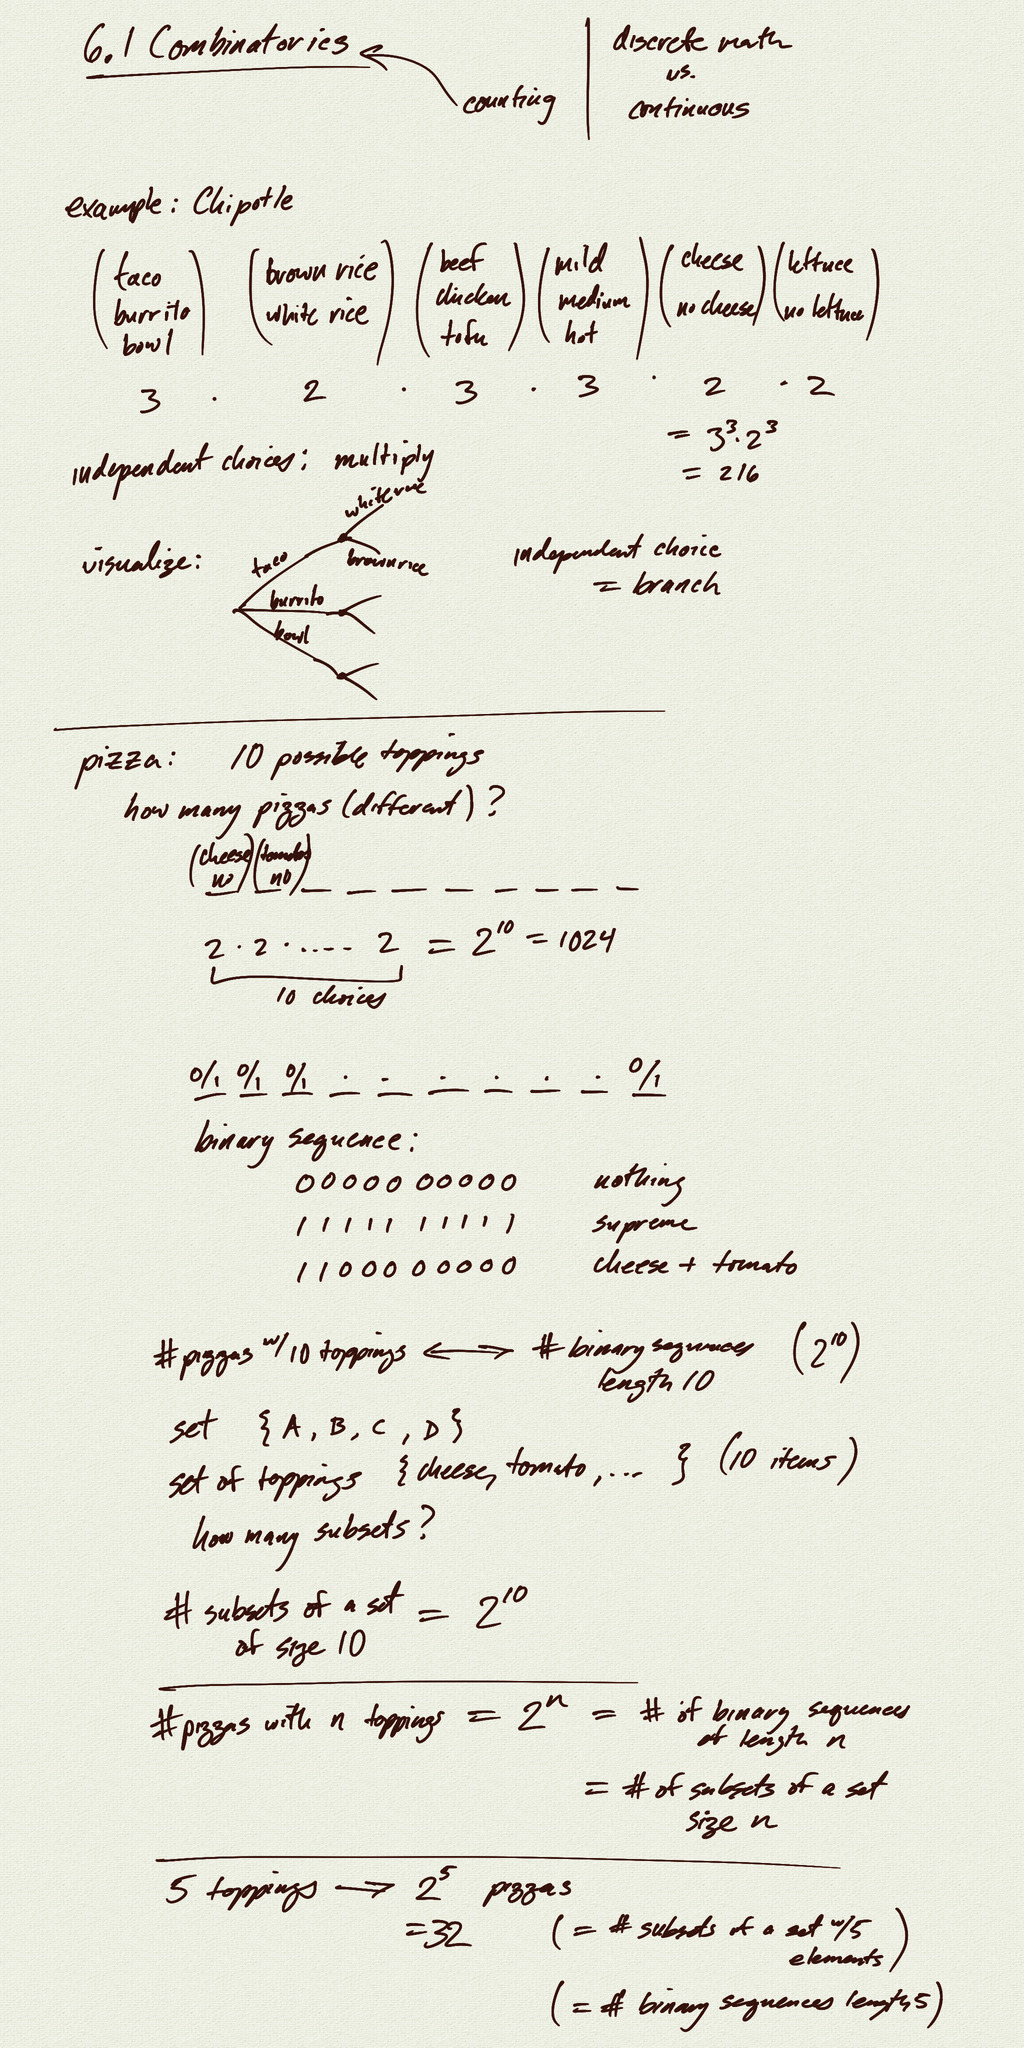 6.1 Combinatories
counting
discrete math
vs.
continuous
example: Chipotle
(taco burrito bowl) (brown rice white rice) (beef chicken tofu) (mild medium hot) (cheese no cheese) (lettuce no lettuce)
3 · 2 · 3 · 3 · 2 · 2
= 3³·2³
= 216
independent choices: multiply
visualize:
taco
white rice
brown rice
burrito
bowl
independent choice
= branch
pizza: 10 possible toppings
how many pizzas (different)?
(cheese no) (tomato no) _ _ _ _ _ _ _ _
2 · 2 · .... 2 = 2¹⁰ = 1024
10 choices
0/1 0/1 0/1 . . . . . . 0/1
binary sequence:
00000 00000 nothing
11111 11111 supreme
11000 00000 cheese + tomato
# pizzas w/ 10 toppings ⟷ # binary sequences length 10 (2¹⁰)
set {A, B, C, D}
set of toppings {cheese, tomato, ... } (10 items)
how many subsets?
# subsets of a set of size 10 = 2¹⁰
# pizzas with n toppings = 2ⁿ = # of binary sequences
of length n
= # of subsets of a set
size n
5 toppings → 2⁵ pizzas
= 32
(= # subsets of a set w/5
elements)
(= # binary sequences length 5)